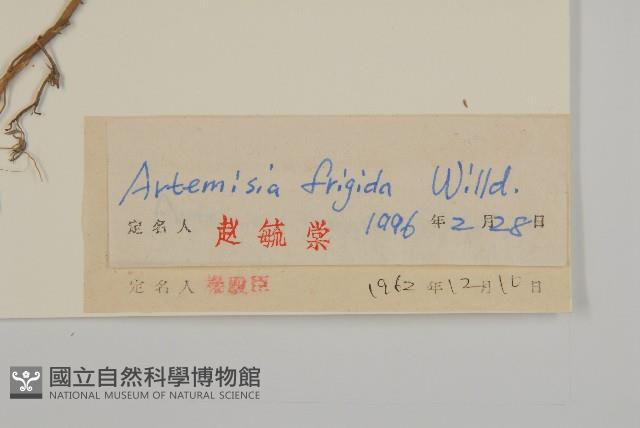 Artemisia frigida Willd.
定名人 赵毓棠 1996年2月28日
定名人 1962年12月10日
國立自然科學博物館
NATIONAL MUSEUM OF NATURAL SCIENCE